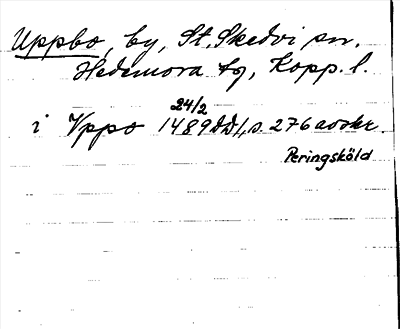 Uppbo, by, St. Skedvi sn.
Hedemora tg, Kopp. l.
24/2
i Vppo 1489 DD 1, s. 276 avskr.
Peringsköld